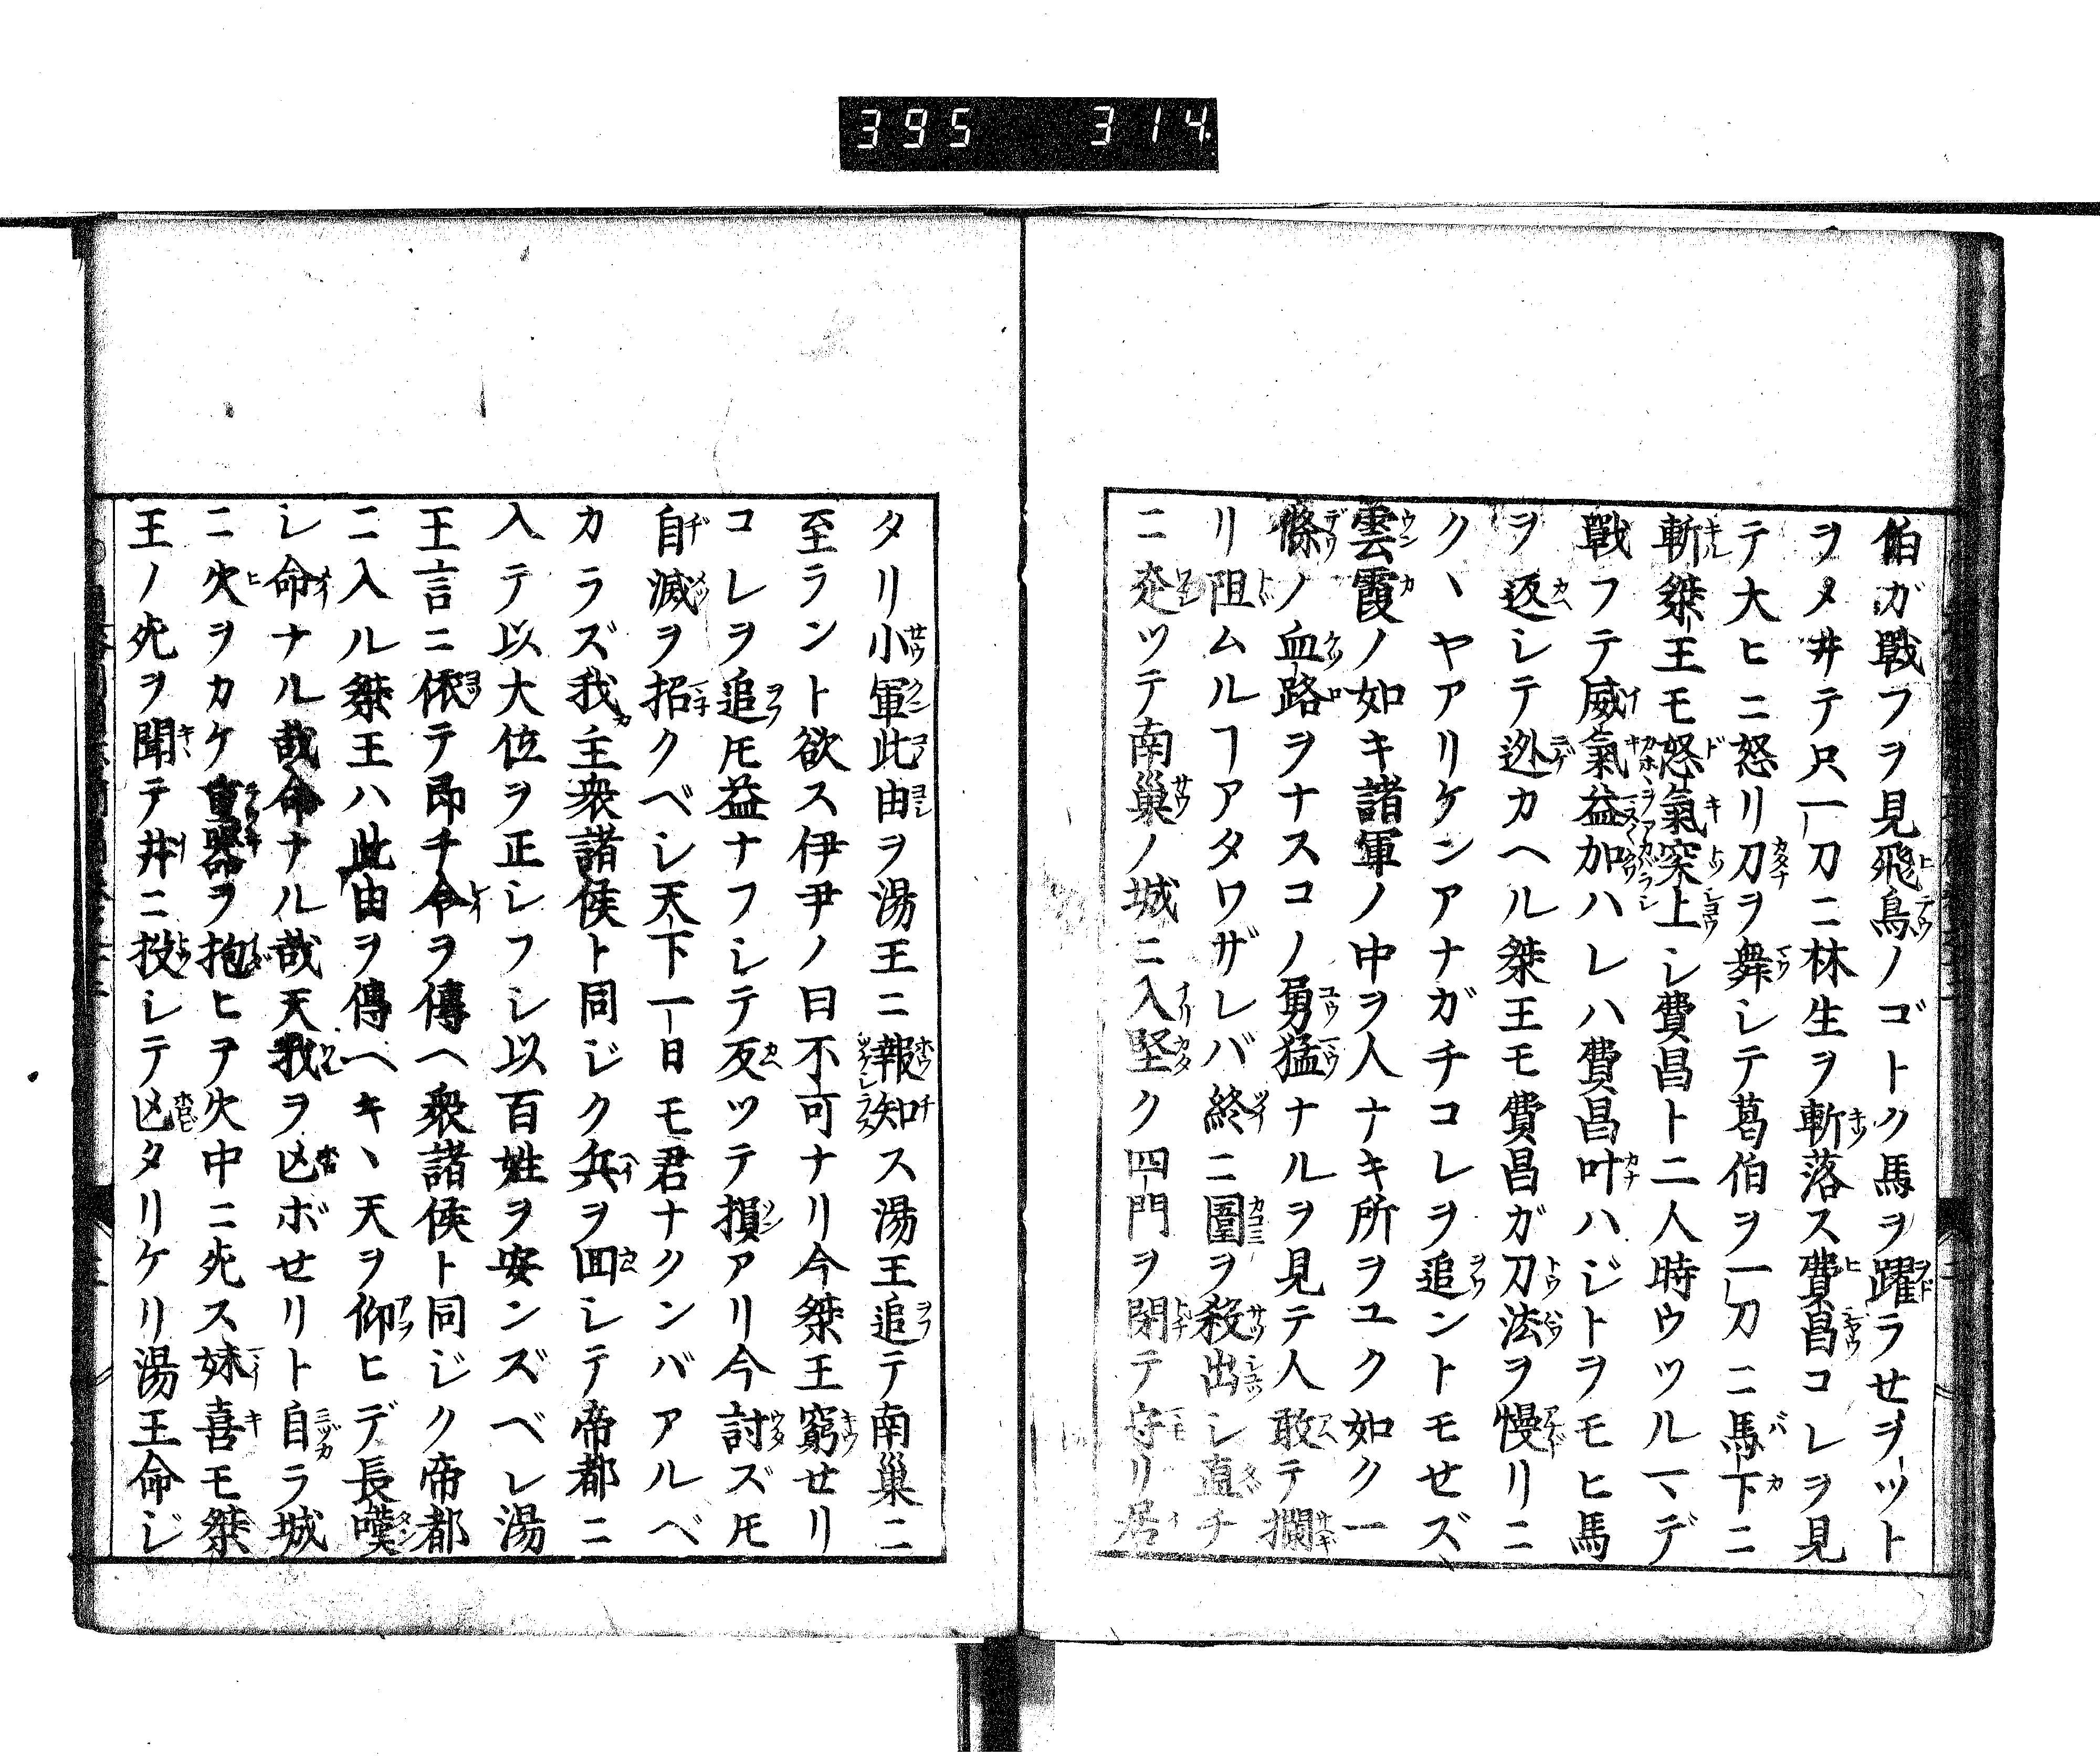 395 314
伯ガ戰フヲ見飛鳥ノゴトク馬ヲ躍ラせヲヽツト
ヲメ井テ只一刀ニ林生ヲ斬落ス費昌コレヲ見
テ大ヒニ怒リ刀ヲ舞シテ葛伯ヲ一刀ニ馬下ニ
斬桀王モ怒氣突上シ費昌ト二人時ウツルマデ
戰フテ威氣益加ハレハ費昌叶ハジトヲモヒ馬
ヲ返シテ迯カヘル桀王モ費昌ガ刀法ヲ慢リニ
クヽヤアリケンアナガチコレヲ追ントモせズ
雲霞ノ如キ諸軍ノ中ヲ人ナキ所ヲユク如ク一
條ノ血路ヲナスコノ勇猛ナルヲ見テ人敢テ攔
リ阻ムルヿアタワザレバ終ニ圍ヲ殺出シ直チ
ニ迯ツテ南巢ノ城ニ入堅ク四門ヲ閉テ守リ居
タリ小軍此由ヲ湯王ニ報知ス湯王追テ南巢ニ
至ラント欲ス伊尹ノ曰不可ナリ今桀王窮せリ
コレヲ追𪜈益ナフシテ反ツテ損アリ今討ズ𪜈
自滅ヲ招クベシ天下一日モ君ナクンバアルベ
カラズ我主衆諸侯ト同ジク兵ヲ回シテ帝都ニ
入テ以大位ヲ正シフシ以百姓ヲ安ンズベレ湯
王言ニ依テ即チ令ヲ傳ヘ衆諸侯ト同ジク帝都
ニ入ル桀王ハ此由ヲ傳ヘキヽ天ヲ仰ヒデ長嘆
シ命ナル哉命ナル哉天我ヲ凶ボせリト自ラ城
ニ火ヲカケ重器ヲ抱ヒヲ火中ニ死ス妺喜モ桀
王ノ死ヲ聞テ井ニ投シテ凶タリケリ湯王命ジ